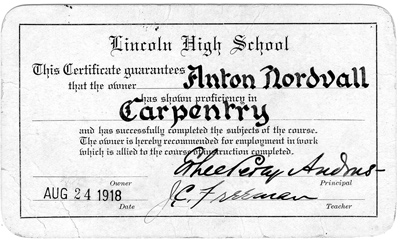 Lincoln High School
This Certificate guarantees Anton Nordvall
that the owner
has shown proficiency in
Carpentry
and has successfully completed the subjects of the course.
The owner is hereby recommended for employment in work
which is allied to the course of instruction completed.
Andrus
Owner
Principal
AUG 24 1918
J.C. Freeman
Date
Teacher